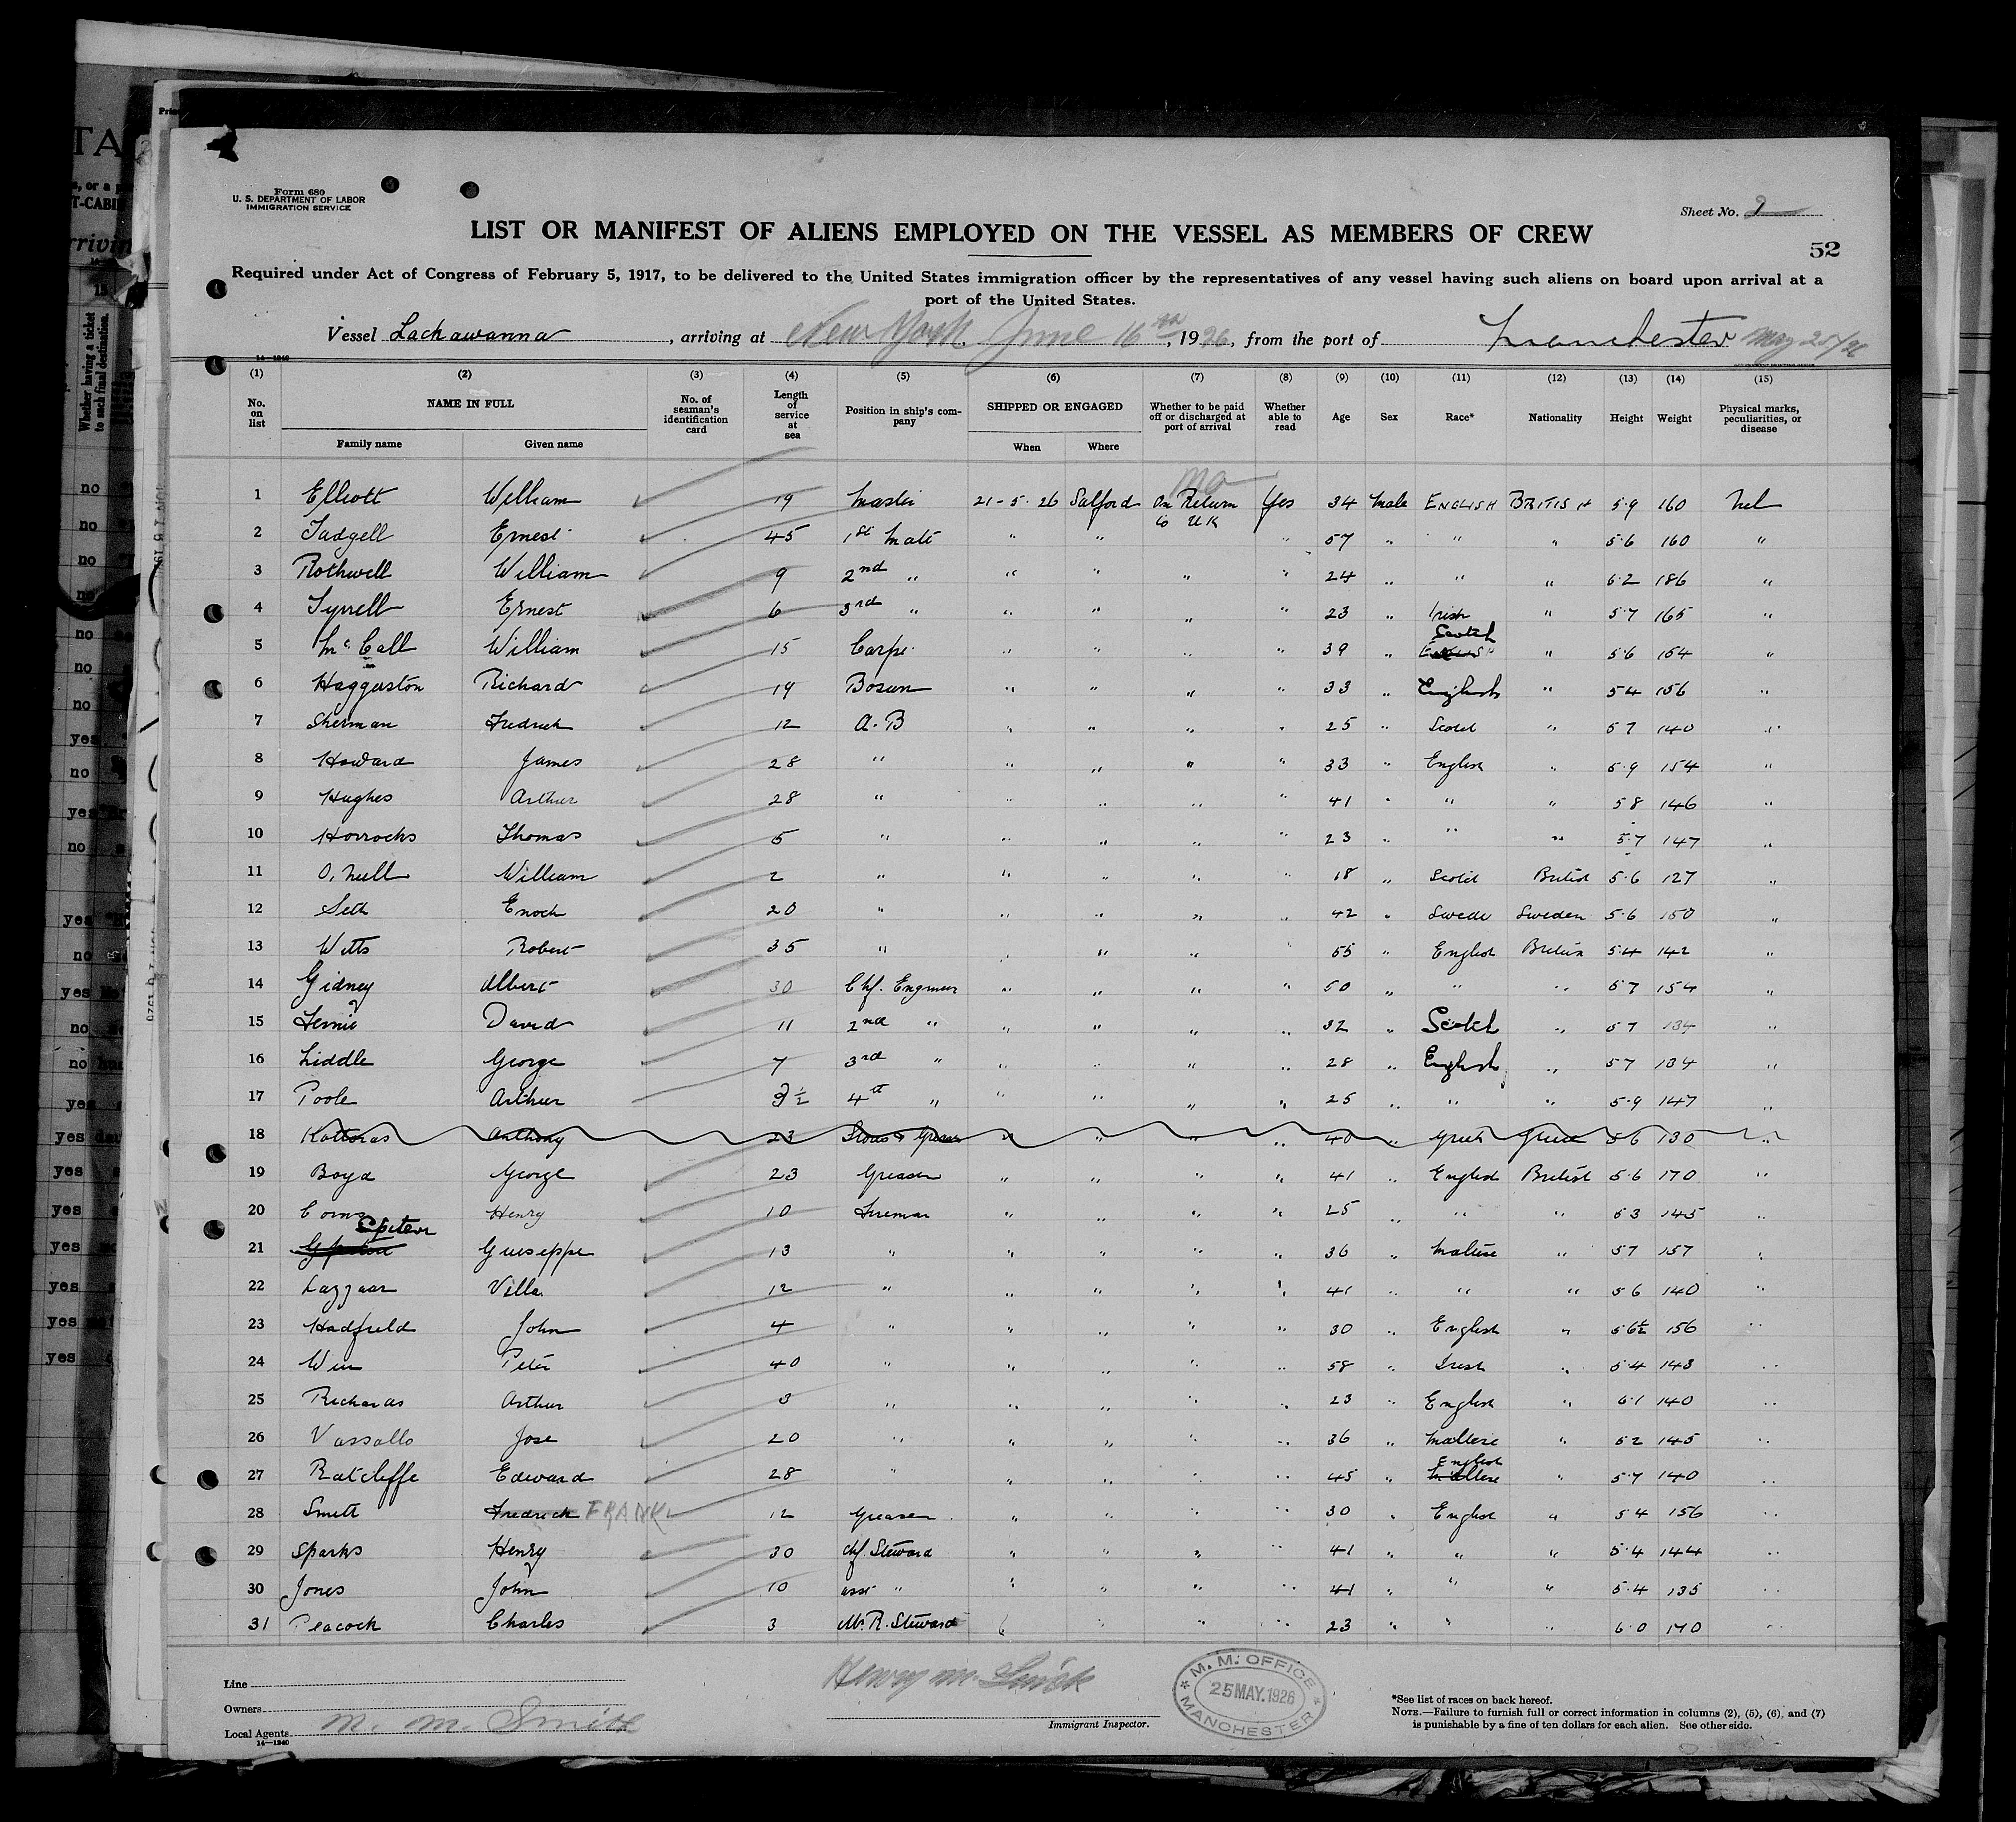 Form 680
U. S. DEPARTMENT OF LABOR
IMMIGRATION SERVICE
Sheet No. 2
LIST OR MANIFEST OF ALIENS EMPLOYED ON THE VESSEL AS MEMBERS OF CREW
52
Required under Act of Congress of February 5, 1917, to be delivered to the United States immigration officer by the representatives of any vessel having such aliens on board upon arrival at a
port of the United States.
Vessel Lackawanna, arriving at New York. June 16th, 1926, from the port of Manchester May 25/26
14—1240
(1) (2) (3) (4) (5) (6) (7) (8) (9) (10) (11) (12) (13) (14) (15)
No. on list NAME IN FULL No. of seaman's identification card Length of service at sea Position in ship's company SHIPPED OR ENGAGED Whether to be paid off or discharged at port of arrival Whether able to read Age Sex Race* Nationality Height Weight Physical marks, peculiarities, or disease
Family name Given name When Where
1 Elliott William 19 Master 21-5-26 Salford On Return to UK Yes 34 Male ENGLISH BRITISH 5.9 160 Nil
2 Tadgell Ernest 45 1st Mate " " " 57 " " " 5.6 160 "
3 Rothwell William 9 2nd " " " " " 24 " " " 6.2 186 "
4 Tyrrell Ernest 6 3rd " " " " " 23 " Irish " 5.7 165 "
5 McCall William 15 Carp. " " " " 39 " Scotch " 5.6 164 "
6 Haggerston Richard 19 Bosun " " " " 33 " English " 5.4 156 "
7 Sherman Fredrick 12 A.B " " " " 25 " Scotch " 5.7 140 "
8 Howard James 28 " " " " " 33 " English " 5.9 154 "
9 Hughes Arthur 28 " " " " " 41 " " " 5.8 146 "
10 Horrocks Thomas 5 " " " " " 23 " " " 5.7 147 "
11 O'Neill William 2 " " " " " 18 " Scotch British 5.6 127 "
12 Seth Enoch 20 " " " " " 42 " Swede Sweden 5.6 150 "
13 Witts Robert 35 " " " " " 55 " English British 5.4 142 "
14 Gidney Albert 30 Chf. Engineer " " " " 50 " " " 5.7 154 "
15 David 11 2nd " " " " " 32 " Scotch " 5.7 134 "
16 Liddle George 7 3rd " " " " " 28 " English " 5.7 134 "
17 Poole Arthur 3½ 4th " " " " " 25 " " " 5.9 147 "
18 Kattoras Anthony 23 Greaser " " " " 40 " Greek Greece 5.6 130 "
19 Boyd George 23 Greaser " " " " 41 " English British 5.6 170 "
20 Corns Henry 10 Fireman " " " " 25 " " " 5.3 145 "
21 Guiseppe 13 " " " " " 36 " Maltese " 5.7 157 "
22 Lazzaar Villa 12 " " " " " 41 " " " 5.6 140 "
23 Hadfield John 4 " " " " " 30 " English " 5.6½ 156 "
24 Peter 40 " " " " " 58 " Irish " 5.4 143 "
25 Richards Arthur 3 " " " " " 23 " English " 6.1 140 "
26 Vassallo Jose 20 " " " " " 36 " Maltese " 5.2 145 "
27 Ratcliffe Edward 28 " " " " " 45 " English Maltese " 5.7 140 "
28 Smith Fredrick FRANK 12 Greaser " " " " 30 " English " 5.4 156 "
29 Sparks Henry 30 Chf. Steward " " " " 41 " " " 5.4 144 "
30 Jones John 10 asst " " " " " 41 " " " 5.4 135 "
31 Peacock Charles 3 M.R. Steward " " " " 23 " " " 6.0 170 "
Line
Owners
Local Agents M. M. Smith
14—1240
Henry M.
Immigrant Inspector.
M. M. OFFICE
25 MAY. 1926
MANCHESTER
*See list of races on back hereof.
NOTE.—Failure to furnish full or correct information in columns (2), (5), (6), and (7)
is punishable by a fine of ten dollars for each alien. See other side.